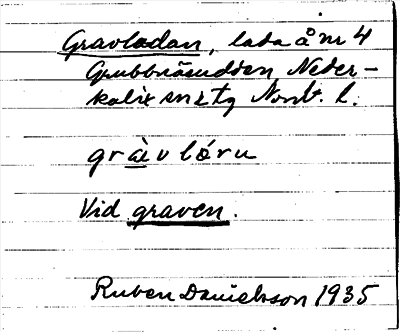 Gravladan, lada å nr 4
Grubbnäsudden, Neder-
kalix sn o tg Norrb. l.
gràv lóru
Vid graven.
Ruben Danielsson 1935